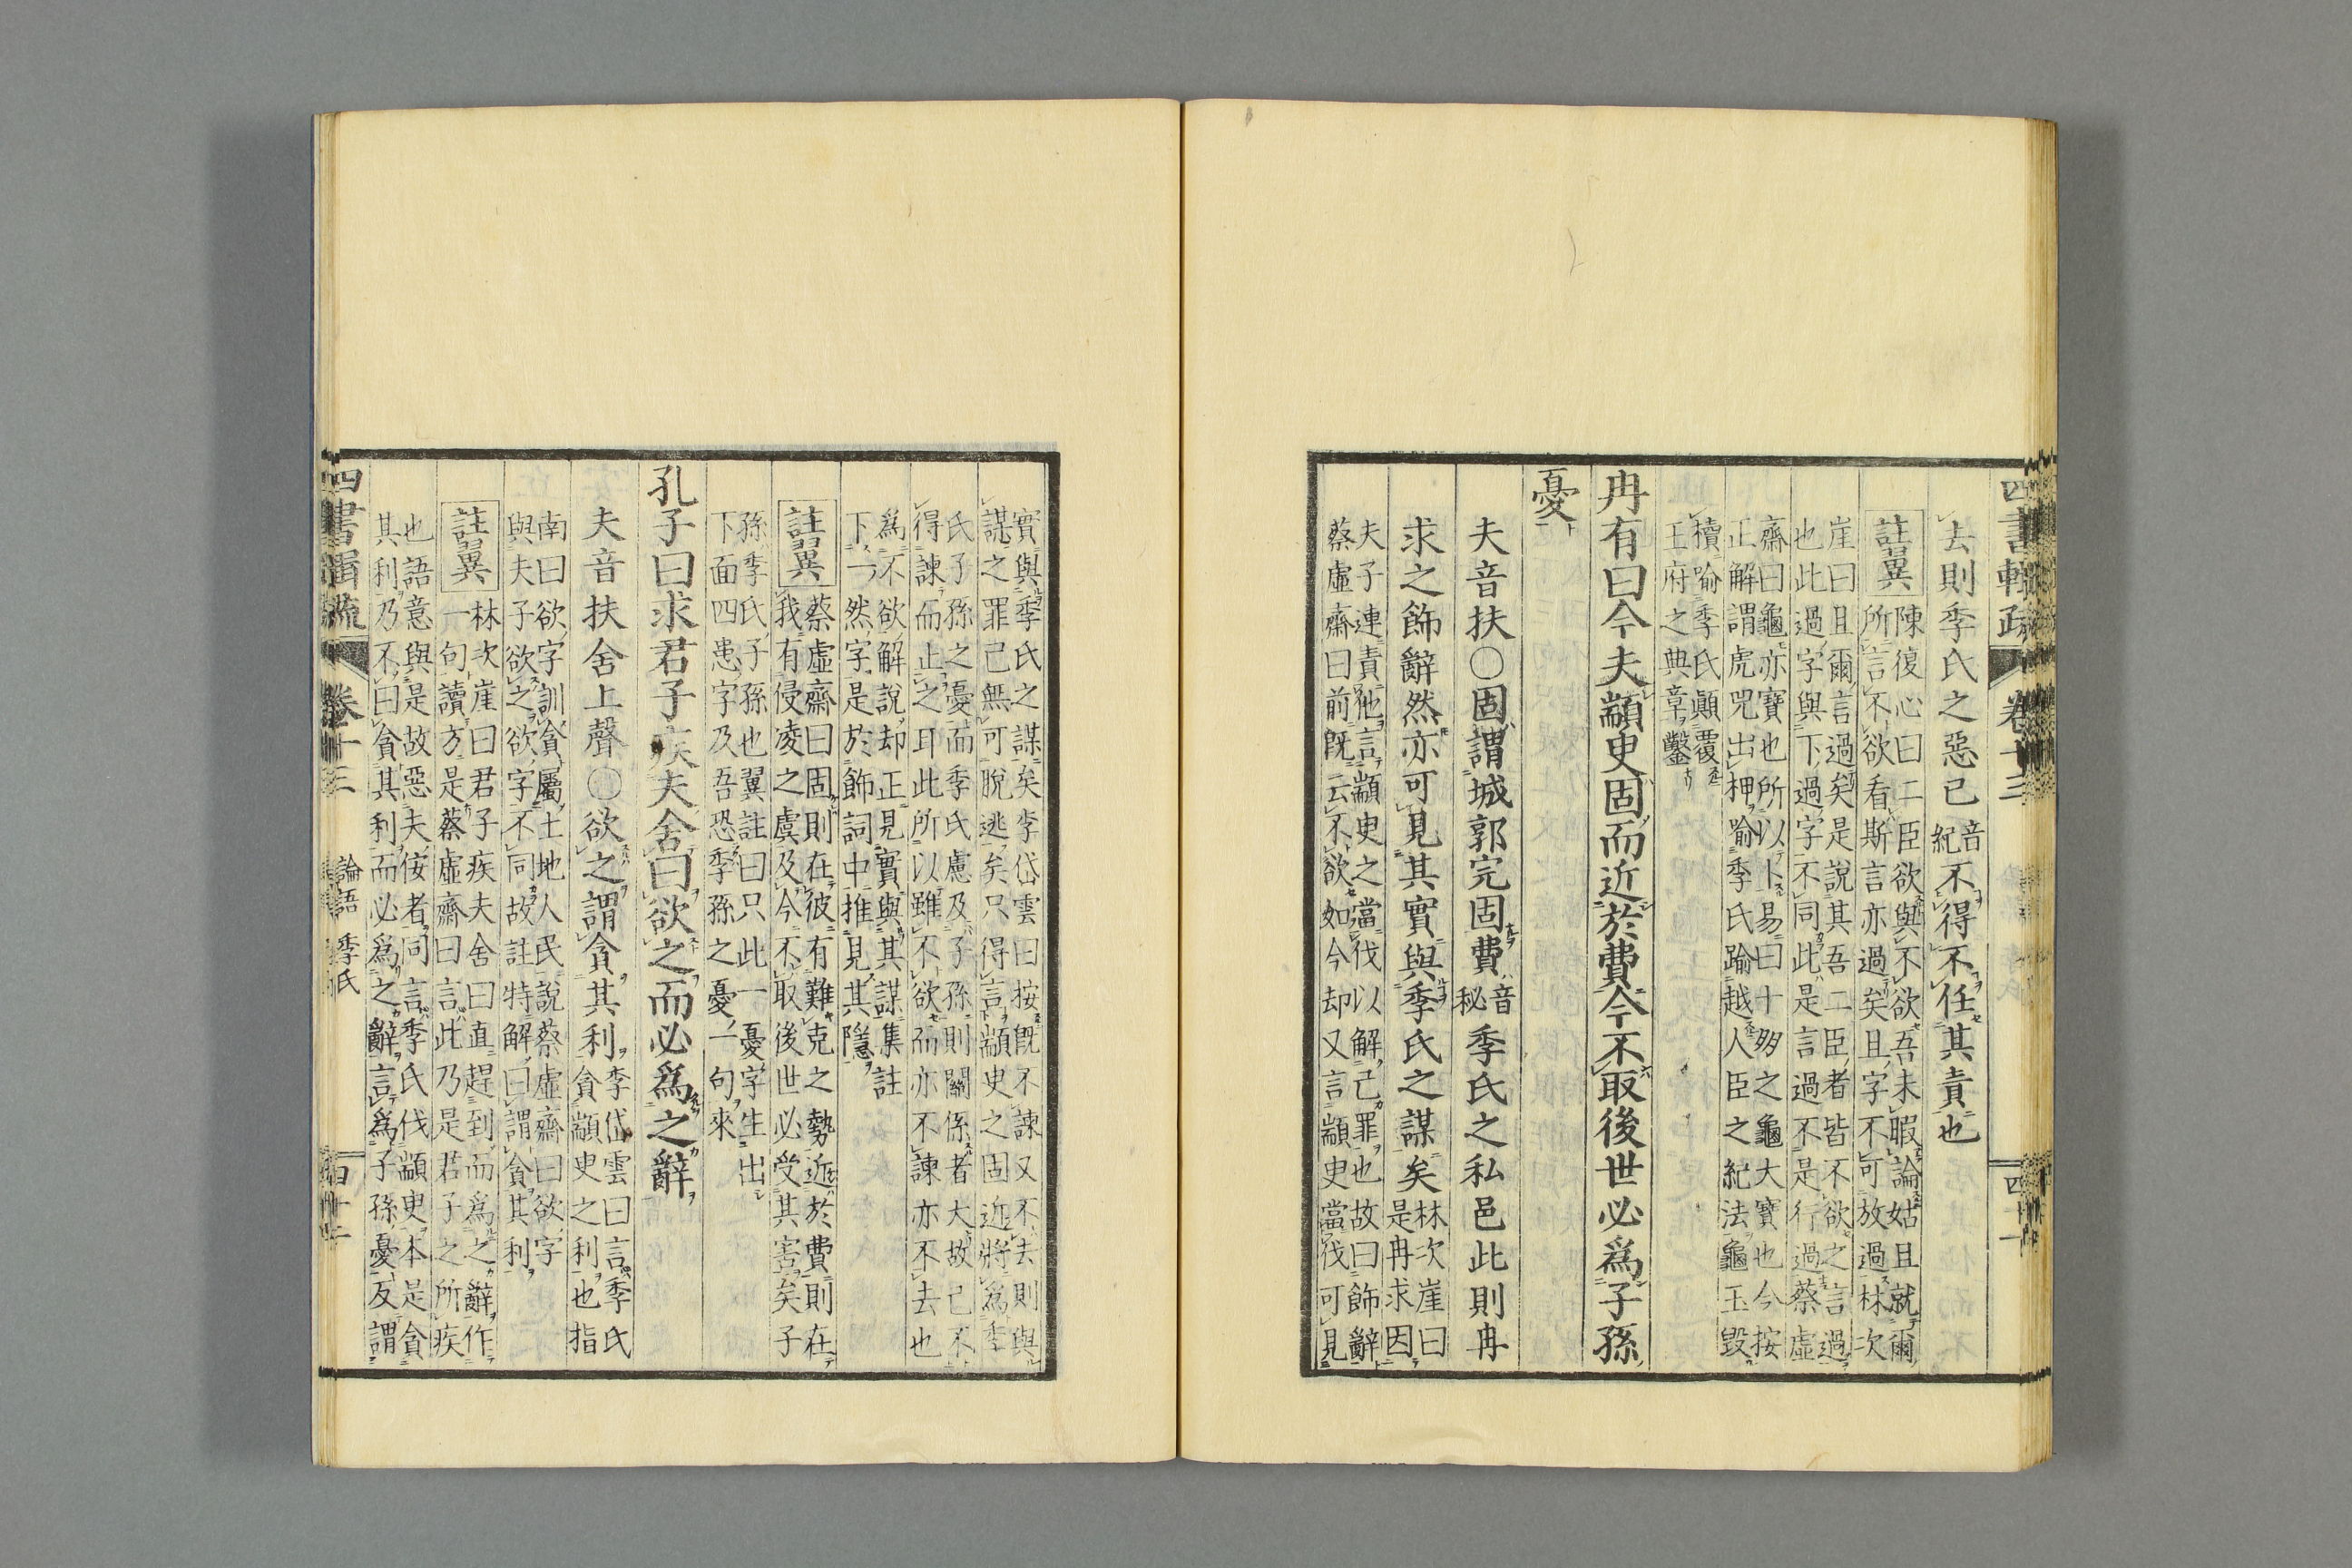 四書輯疏 卷十三 四十一
去則季氏之惡己音紀不得不任其責也
註翼 陳復心曰二臣欲與不欲吾未暇論姑且就爾
所言不欲看斯言亦過矣且字不可放過林次
崖曰且爾言過矣是說其吾二臣者皆不欲之言過
也此過字與下過字不同此是言過不是行過蔡虛
齋曰龜亦寶也所以卜易曰十朋之龜大寶也今按
正解謂虎兕出柙喻季氏踰越人臣之紀法龜玉毀
櫝喻季氏顛覆
王府之典章鑿
冉有曰今夫顓臾固而近於費今不取後世必爲子孫
憂
夫音扶○固謂城郭完固費音秘季氏之私邑此則冉
求之飾辭然亦可見其實與季氏之謀矣林次崖曰是冉求因
夫子連責他言顓臾之當伐以解己罪也故曰飾辭
蔡虛齋曰前既云不欲如今却又言顓臾當伐可見
實與季氏之謀矣李岱雲曰按既不諫又不去則與
謀之罪已無可脫逃矣只得言顓臾之固近將爲季
氏子孫之憂而季氏慮及子孫則關係者大故己不
得諫而止之耳此所以雖不欲而亦不諫亦不去也
爲不欲解說却正見實與其謀集註
下一然字是於飾詞中推見其隱
註翼 蔡虛齋曰固則在彼有難克之勢近於費則在
我有侵凌之虞及今不取後世必受其害矣子
孫季氏子孫也翼註曰只此一憂字生出
下面四患字及吾恐季孫之憂一句來
孔子曰求君子疾夫舍曰欲之而必爲之辭
夫音扶舍上聲○欲之謂貪其利李岱雲曰言季氏貪顓臾之利也指
南曰欲字訓貪屬土地人民說蔡虛齋曰欲字
與夫子欲之欲字不同故註特解曰謂貪其利
註翼 林次崖曰君子疾夫舍曰直趕到而爲之辭作
一句讀方是蔡虛齋曰言此乃是君子之所疾
也語意與是故惡夫佞者同言季氏伐顓臾本是貪
其利乃不曰貪其利而必爲之辭言爲子孫憂反謂
四書輯疏 卷十三 論語 季氏 四十一